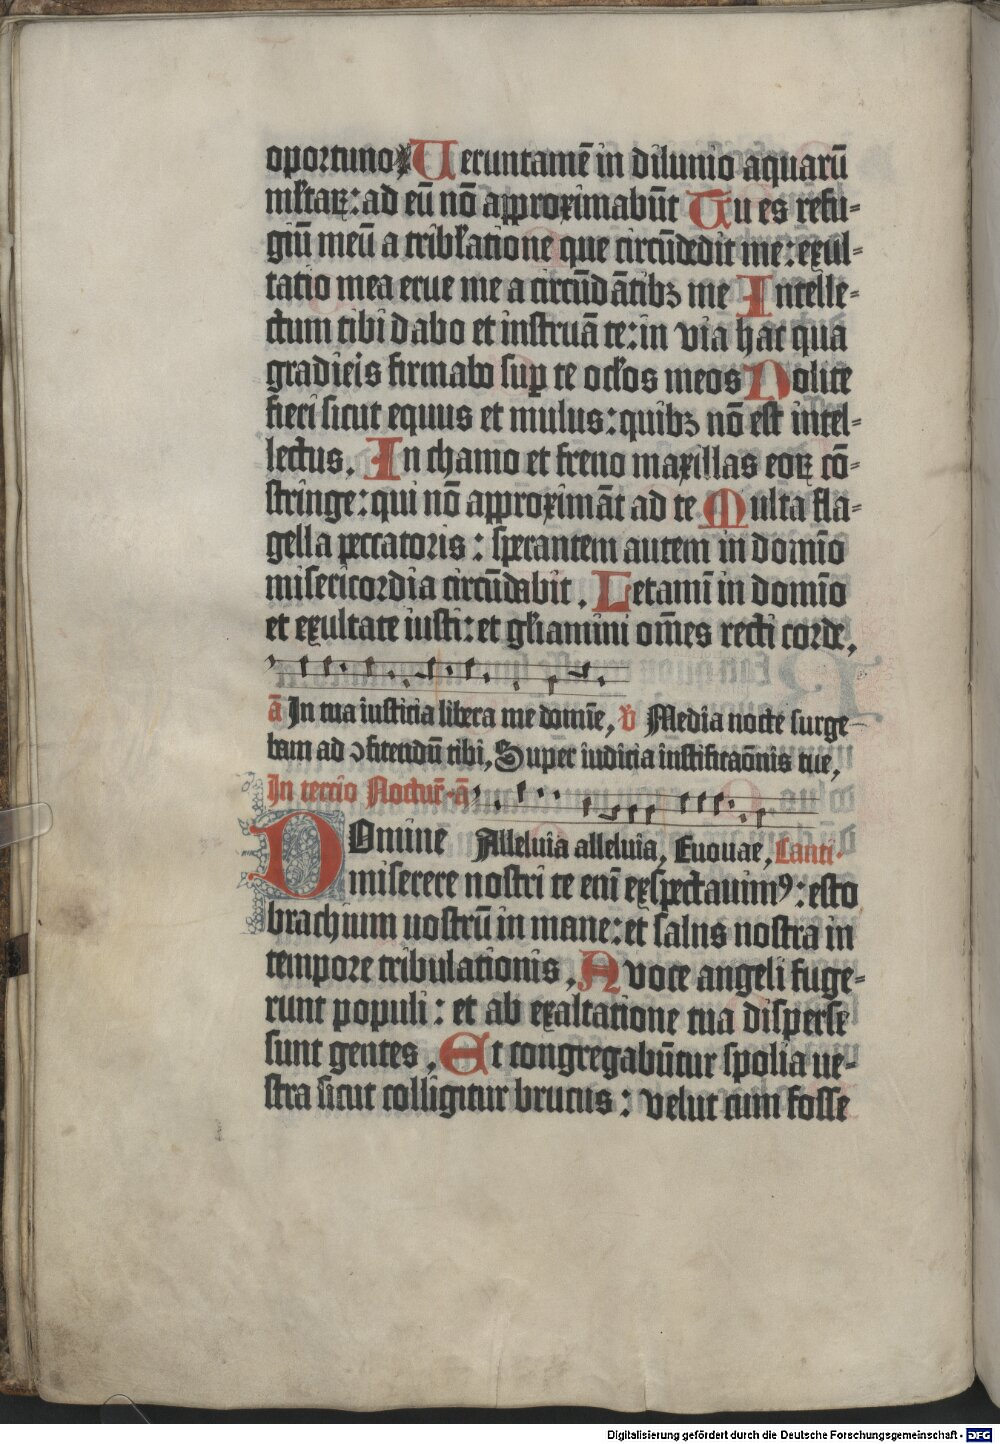 oportuno Ueruntamē in diluuio aquarū
mĺtaꝝ: ad eū nō approximabūt Tu es refu-
giū meū a tribĺatione que circūdedit me: exul-
tatio mea erue me a circūdātibꝫ me Intelle-
ctum tibi dabo et instruā te: in via hac qua
gradieis firmabo suꝑ te ocĺos meos Nolite
fieri sicut equus et mulus: quibꝫ nō est intel-
lectus. In chamo et freno maxillas eoꝝ cō-
stringe: qui nō approximāt ad te Multa fla-
gella peccatoris: sperantem autem in domīo
misericordia circūdabit. Letamī in domīo
et exultate iusti: et gĺiamini om̄es recti corde,
ā In tua iusticia libera me domīe, ℣ Media nocte surge-
bam ad ↄfitendū tibi, Super iudicia iustificaōnis tue,
In tercio Nocturꝰ ā
DOmine Alleluia alleluia, Euouae, Canti.
miserere nostri te enī exspectauimꝰ: esto
brachium nostrū in mane: et salus nostra in
tempore tribulationis, A voce angeli fuge-
runt populi: et ab exaltatione tua disperse
sunt gentes, Et congregabūtur spolia ve-
stra sicut colligitur brucus: velut cum fosse
Digitalisierung gefördert durch die Deutsche Forschungsgemeinschaft - DFG